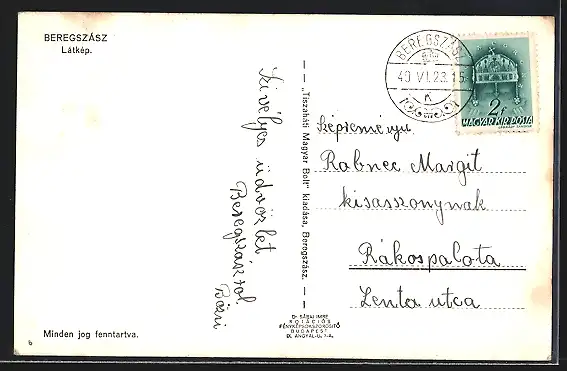 BEREGSZÁSZ
Látkép.
Szivélyes üdvözlet
Beregszászról
Bözsi
Minden jog fenntartva.
6
"Tiszaháti Magyar Bolt" kiadása, Beregszász.
Dr SÁRAI IMRE
ROTÁCIÓS
FÉNYKÉPSOKSZOROSÍTÓ
BUDAPEST
IX. ANGYAL-U.
BEREGSZÁSZ
40 VI. 23. 15
2f
MAGYAR KIR. POSTA
Rabnec Margit
kisasszonynak
Rákospalota
Lenta utca